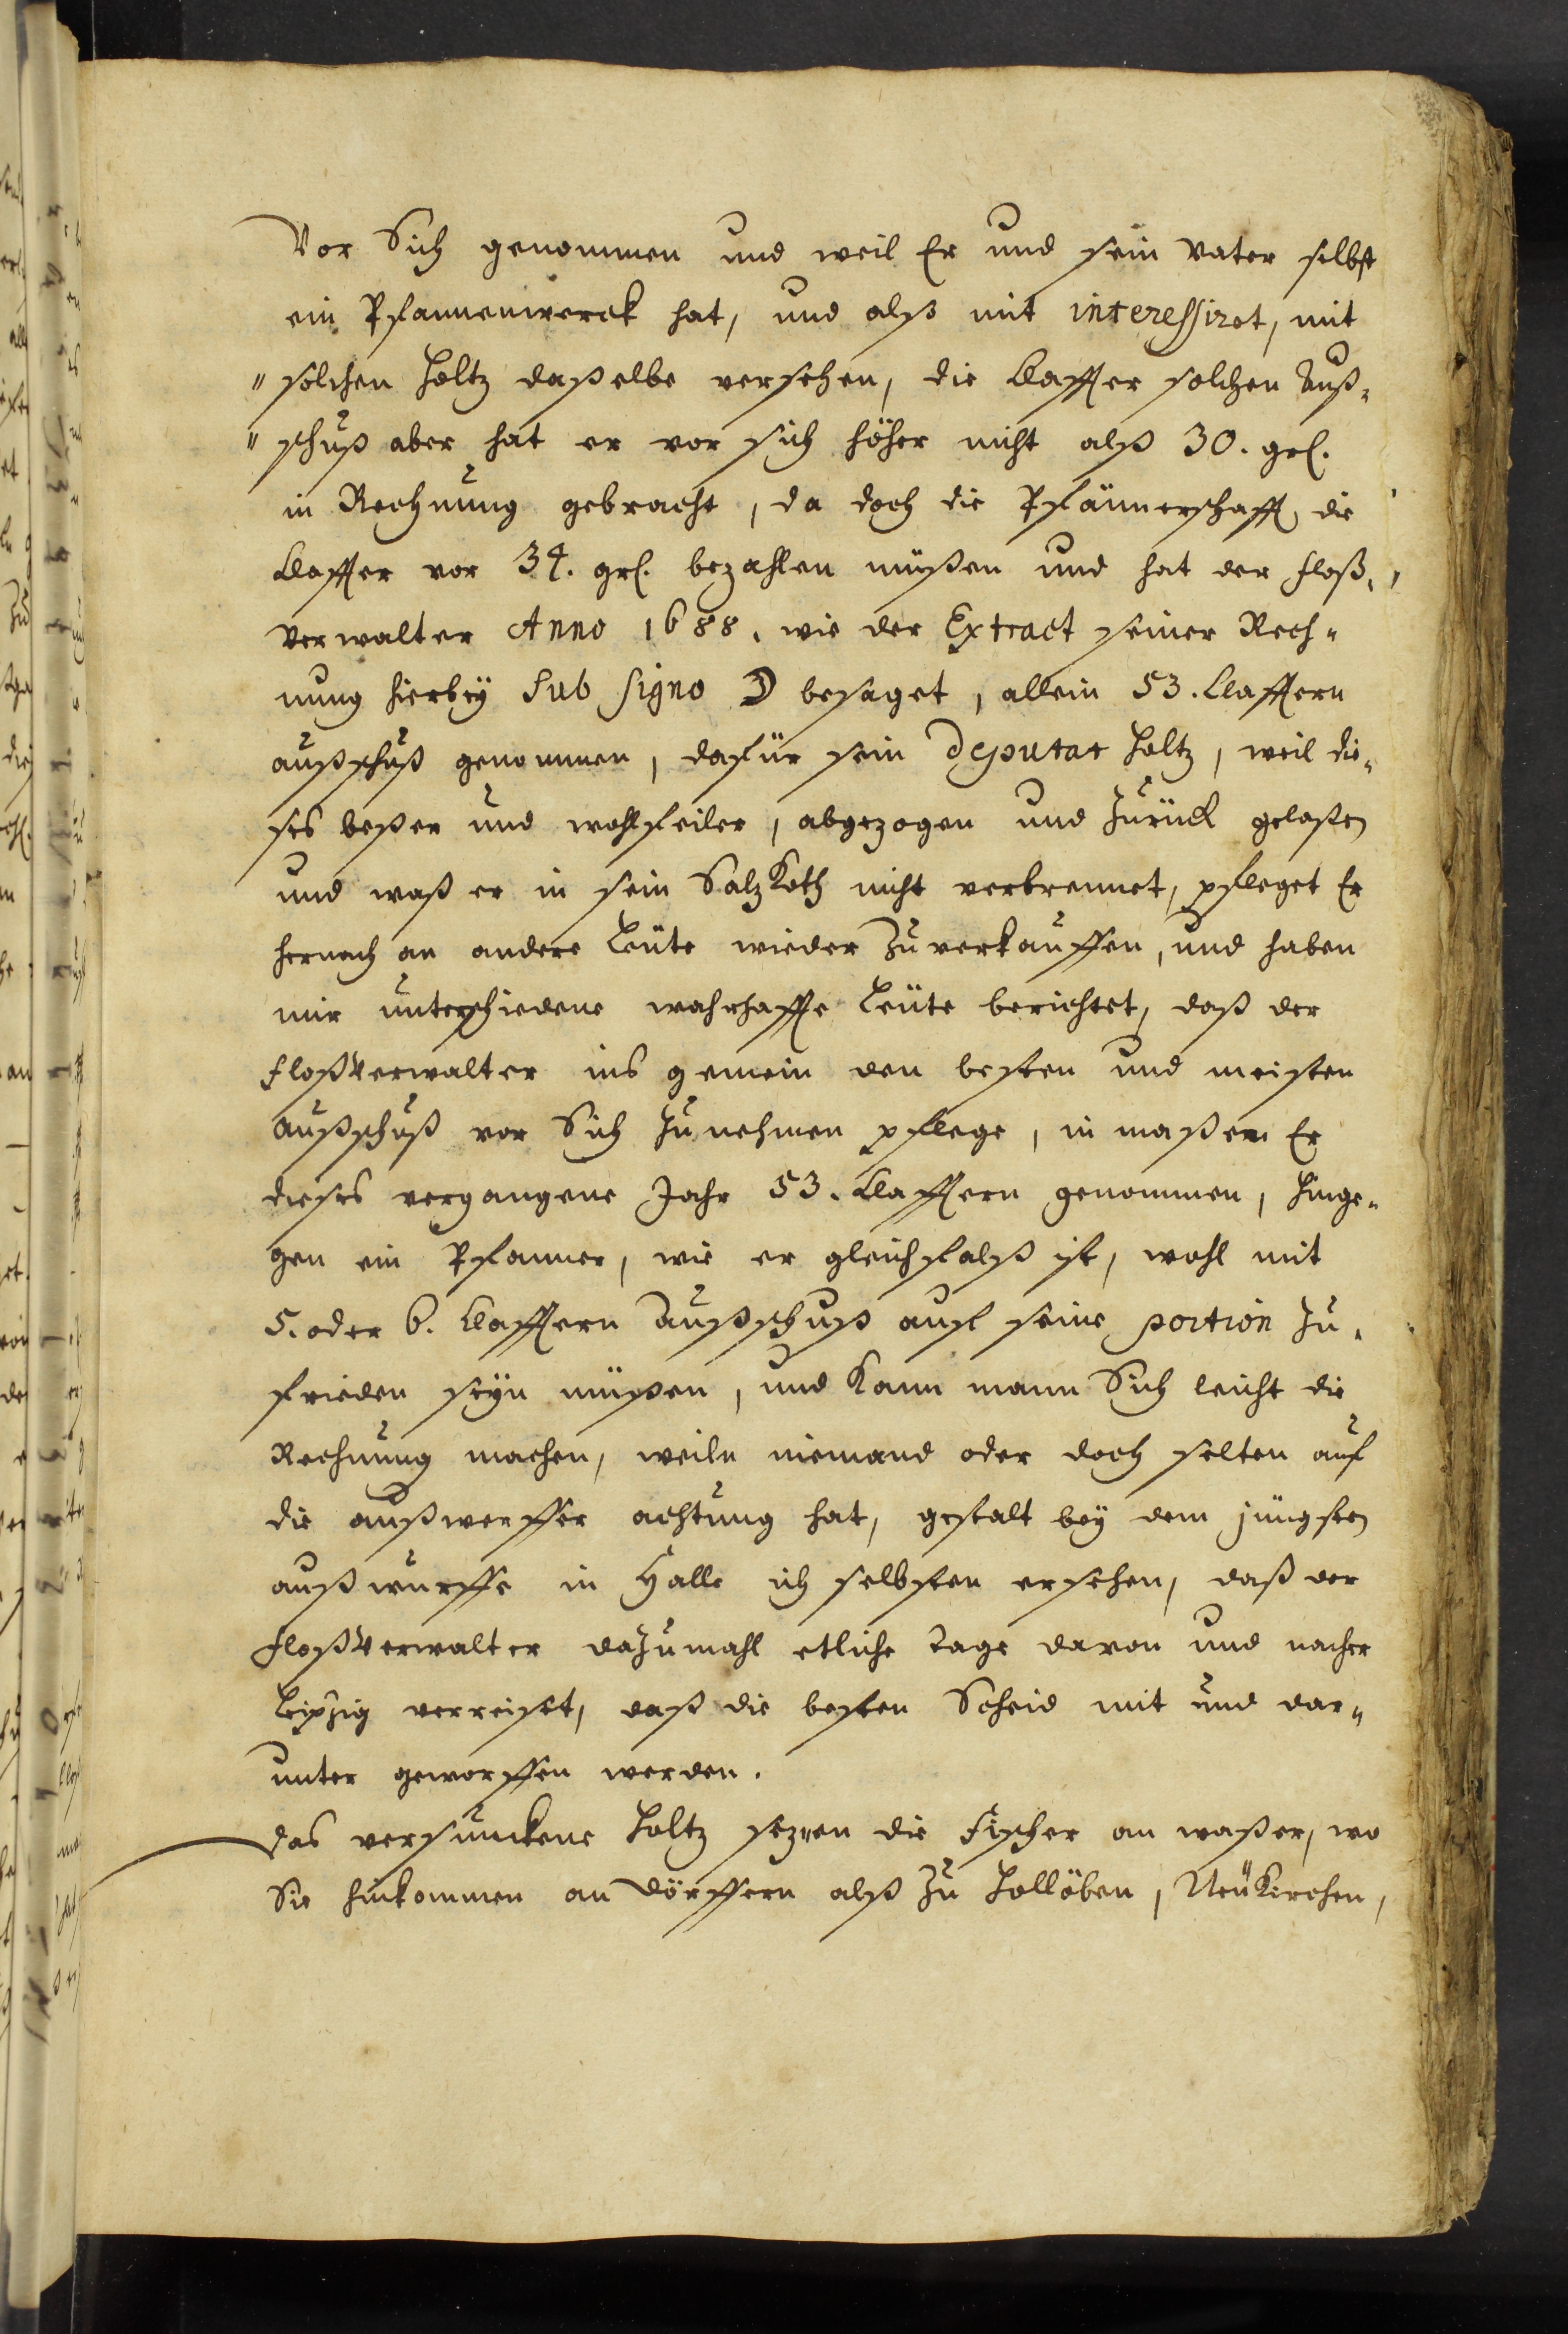 Vor Sich genommen und weil Er und sein Vater selbst
ein Pfannenwerck hat, und alß mit interessiret, mit
" solchen Holtz daßelbe versehen, die Claffter solchen Auß„
" schuß aber hat er vor sich höher nicht alß 30. grl.
in Rechnung gebracht, da doch die Pfännerschafft die
Claffter vor 34. grl. bezahlen müßen und hat der Floß„
Verwalter Anno 1688. wie der Extract seiner Rech„
nung hierbey sub signo D besaget, allein 53. Clafftern
außschuß genommen, dafür sein Deputat Holtz, weil die„
ses beßer und wohlfeiler, abgezogen und Zurück gelaßen
und waß er in sein Saltz Koth nicht verbrennet, pfleget Er
hernach an andere Leüte wieder Zuverkauffen, und haben
mir unterschiedene wahrhaffte Leüte berichtet, daß der
FloßVerwalter ins gemein den besten und meisten
Außschuß vor Sich Zunehmen pflege, in maßen Er
dieses vergangene Jahr 53. Clafftern genommen, hinge„
gen ein Pfänner, wie er gleichfalß ist, wohl mit
5. oder 6. Clafftern Außschuß auf seine portion Zu„
frieden seyn müßen, und Kann mann Sich leicht die
Rechnung machen, weiln niemand oder doch selten auf
die außwerffer achtung hat, gestalt bey dem jüngsten
außwurffe in Halle ich selbsten ersehen, daß der
FloßVerwalter daZumahl etliche Tage davon und nacher
Leipzig verreiset, daß die besten Scheid mit und dar„
unter geworffen werden.
Das versunckene Holtz sezen die Fischer an waßer, wo
Sie hinkommen an Dörffern alß Zu Holleben, NeuKirchen,